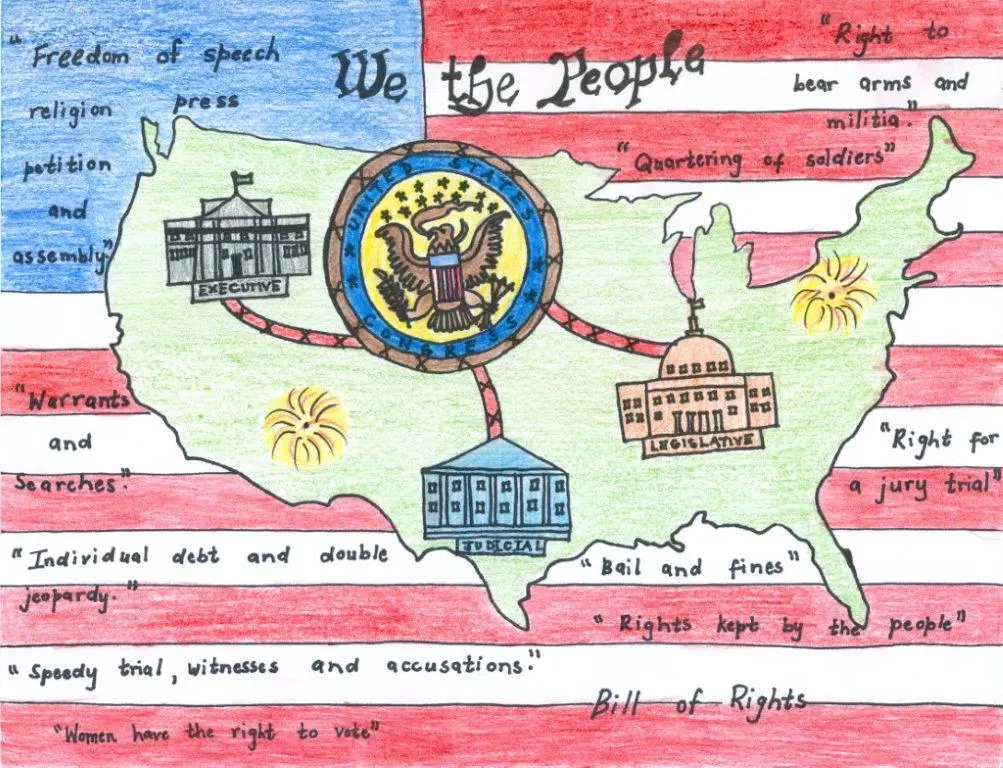 We the People
"Freedom of speech
religion press
petition
and
assembly."
"Right to
bear arms and
militia."
"Quartering of soldiers"
UNITED STATES
CONGRESS
EXECUTIVE
LEGISLATIVE
JUDICIAL
"Warrants
and
Searches."
"Right for
a jury trial"
"Individual debt and double
jeopardy."
"Bail and fines"
"Rights kept by the people"
"Speedy trial, witnesses and accusations."
Bill of Rights
"Women have the right to vote"